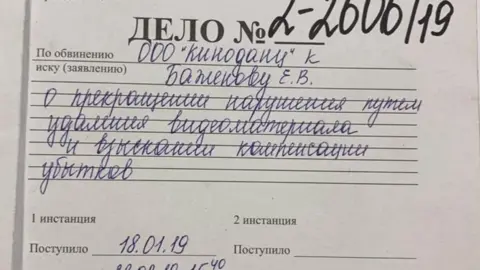 ДЕЛО № 2-2606/19
По обвинению ООО "Кинодanц" к
иску (заявлению) Баженову Е.В.
о прекращении нарушения путем
удаления видеоматериала
и взыскании компенсации
убытков
1 инстанция 2 инстанция
Поступило 18.01.19 Поступило